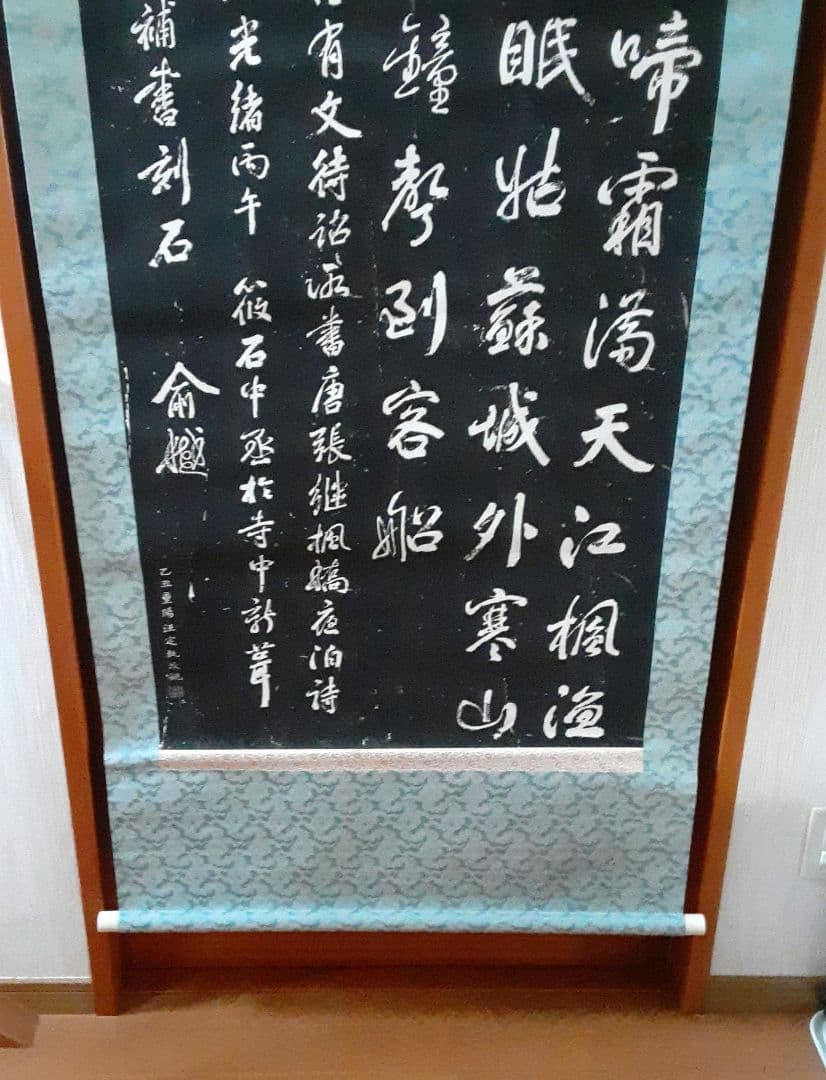 啼霜滿天江楓漁
眠姑蘇城外寒山
鐘聲到客船
有文待詔所書唐張繼楓橋夜泊詩
光緒丙午筱石中丞於寺中新葺
補書刻石 俞樾
乙丑重陽汪定執